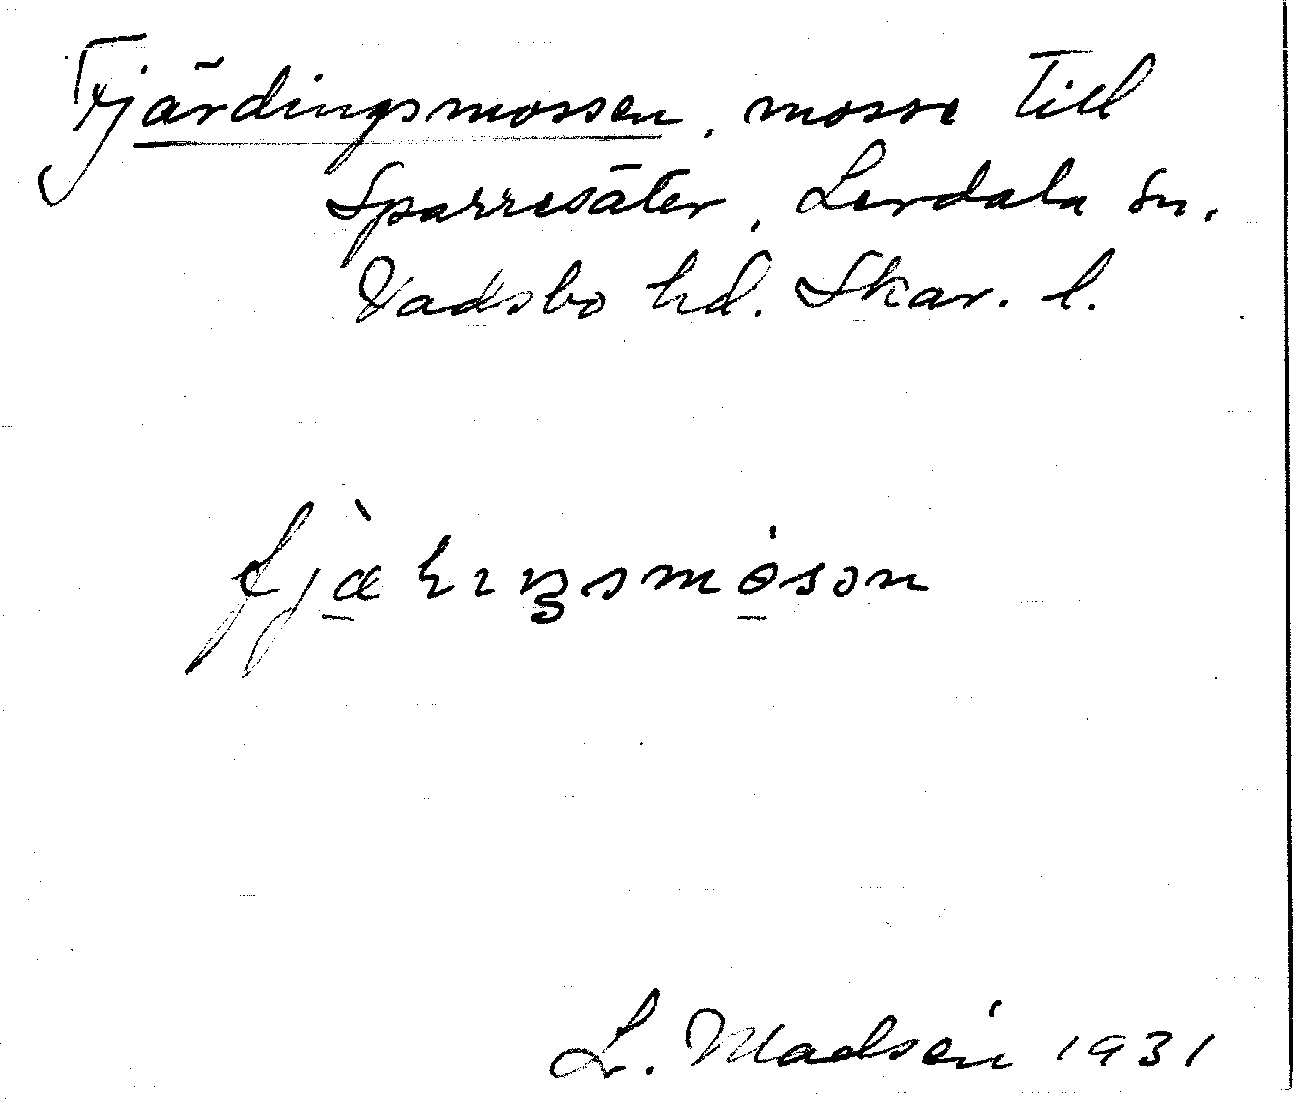 Fjärdingsmossen, mosse till
Sparresäter, Lerdala sn.
Vadsbo hd. Skar. l.
fjæ̠̀ɽıŋsmo̠̍sən
L. Madsén 1931